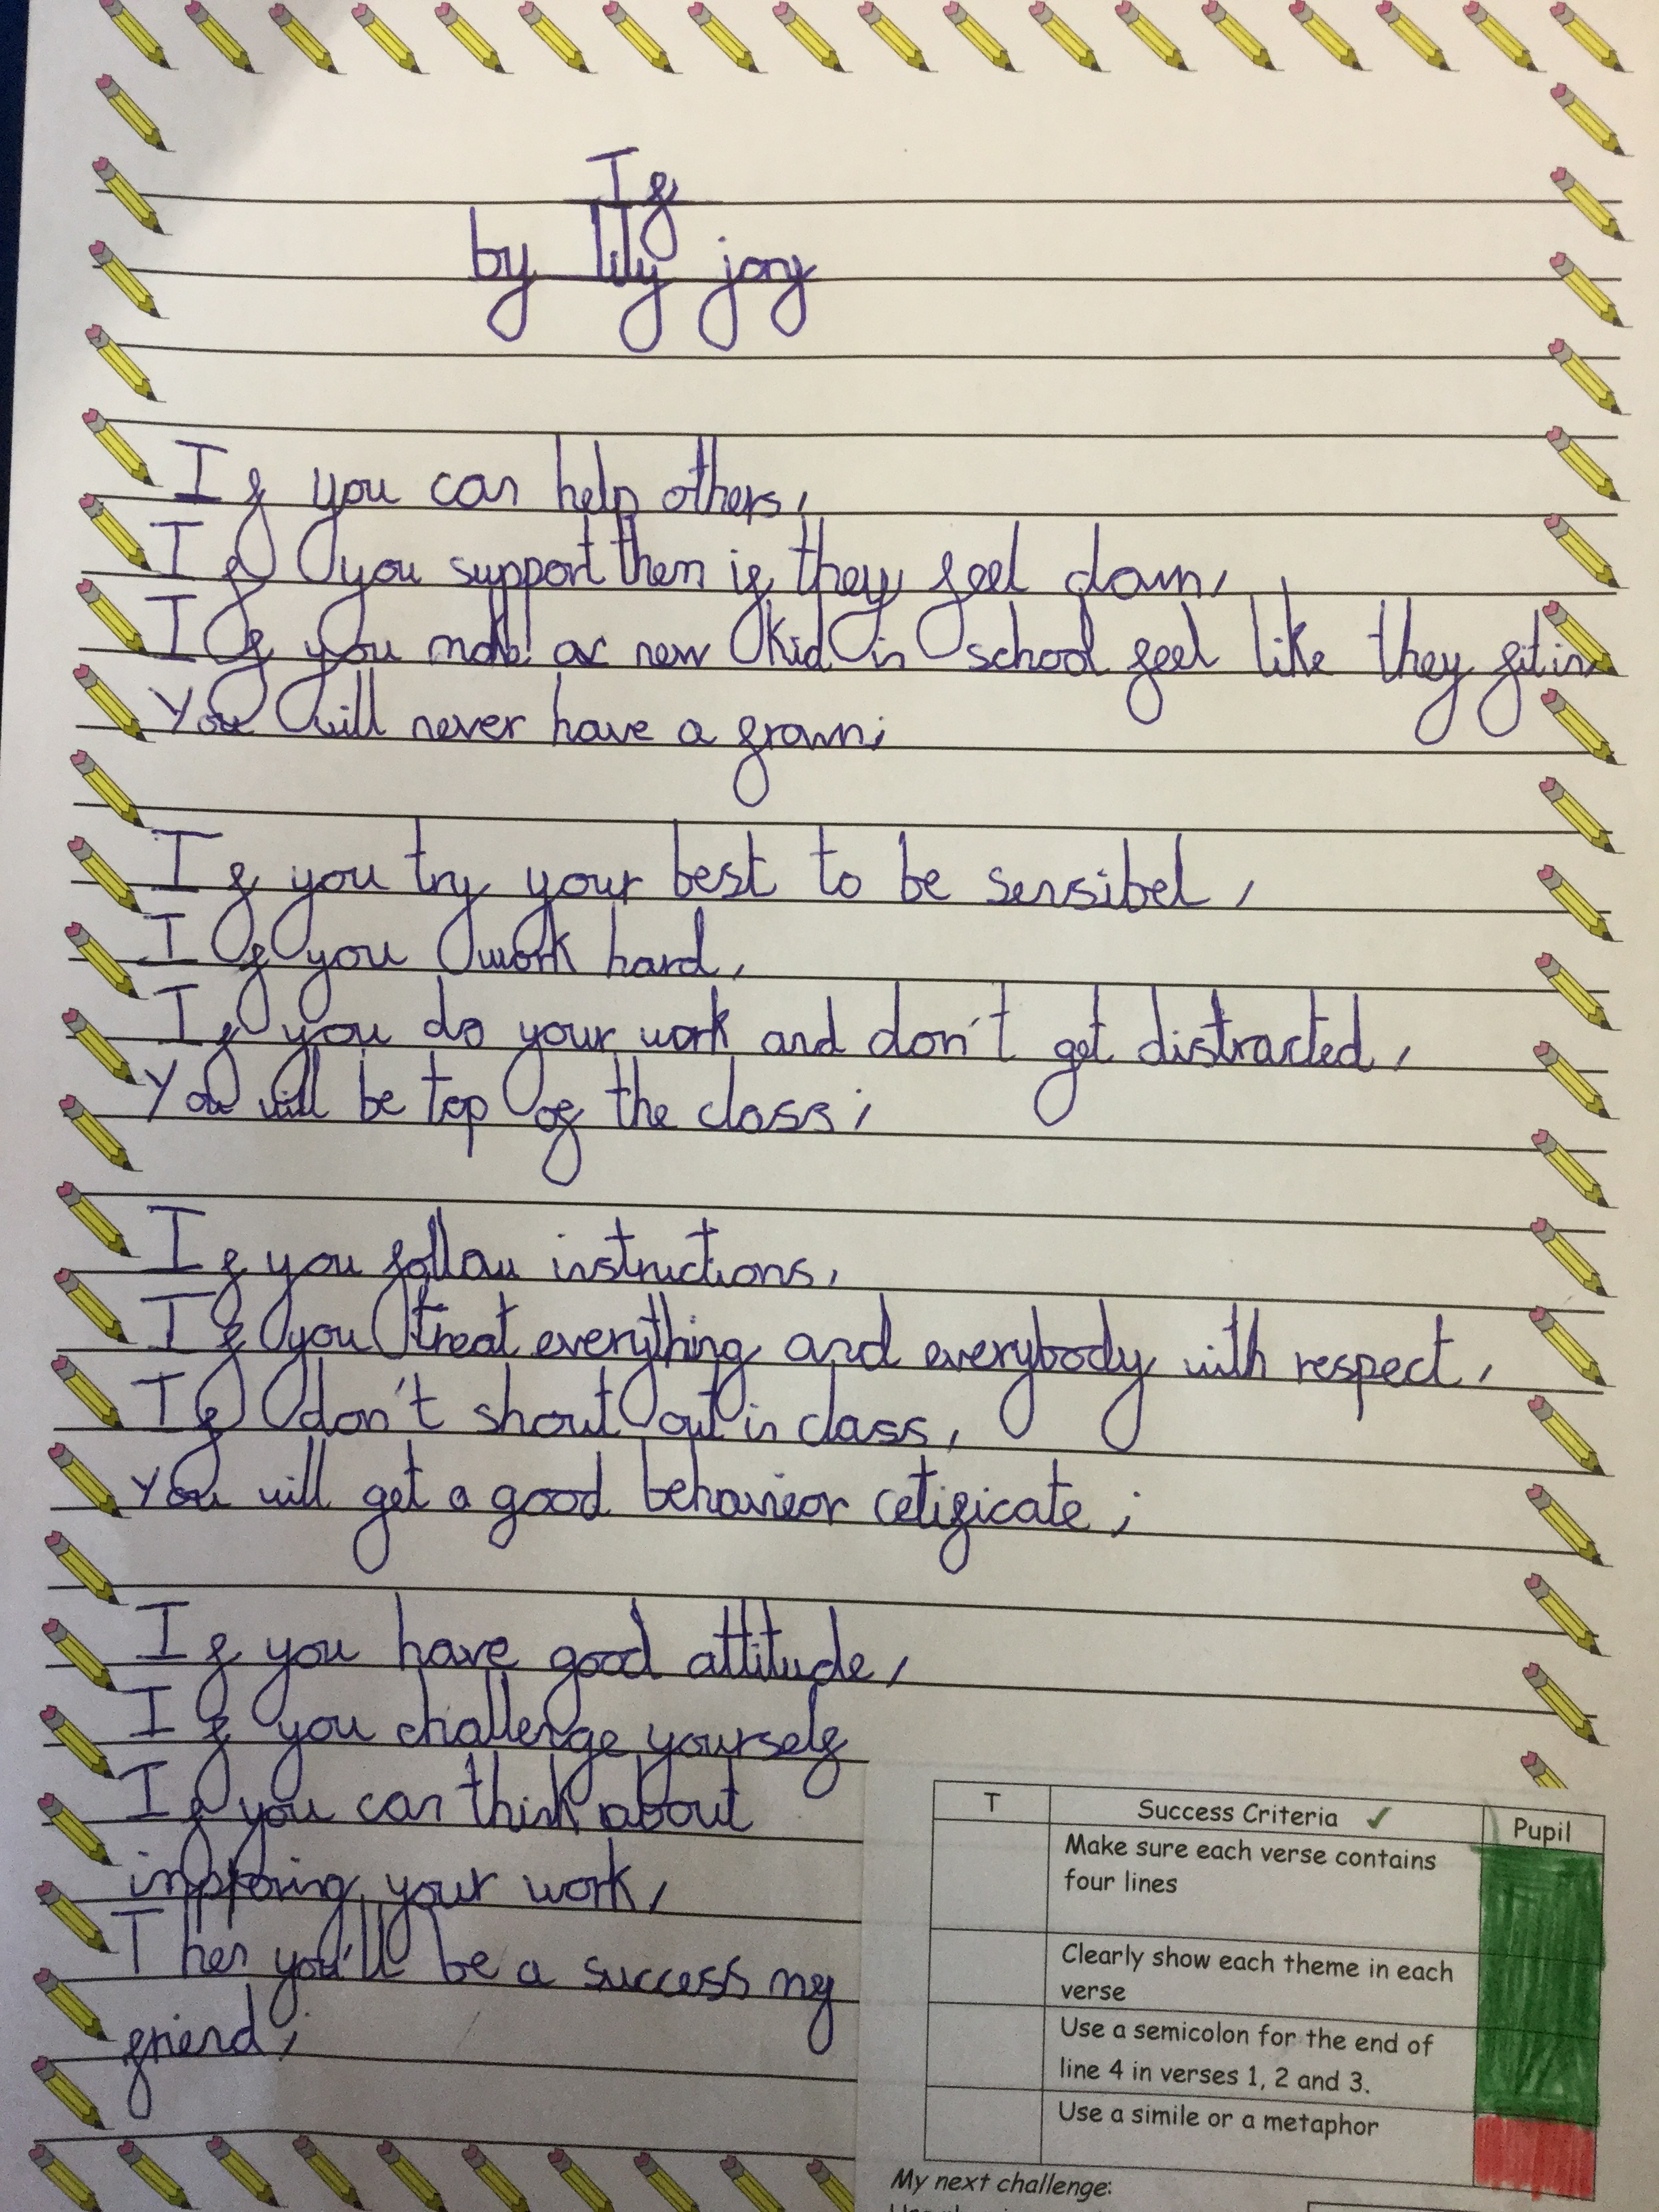 If
by lily jory
If you can help others,
If you support them if they feel down,
If you make a new kid in school feel like they fit in
You will never have a frown;
If you try your best to be sensibel,
If you work hard,
If you do your work and don't get distracted,
You will be top of the class;
If you follow instructions,
If you treat everything and everybody with respect,
If don't shout out in class,
You will get a good behavieor cetificate;
If you have good attitude,
If you challenge yourself
If you can think about
improving your work,
Then you'll be a success my
friend;
T Success Criteria ✓ Pupil
Make sure each verse contains
four lines
Clearly show each theme in each
verse
Use a semicolon for the end of
line 4 in verses 1, 2 and 3.
Use a simile or a metaphor
My next challenge: